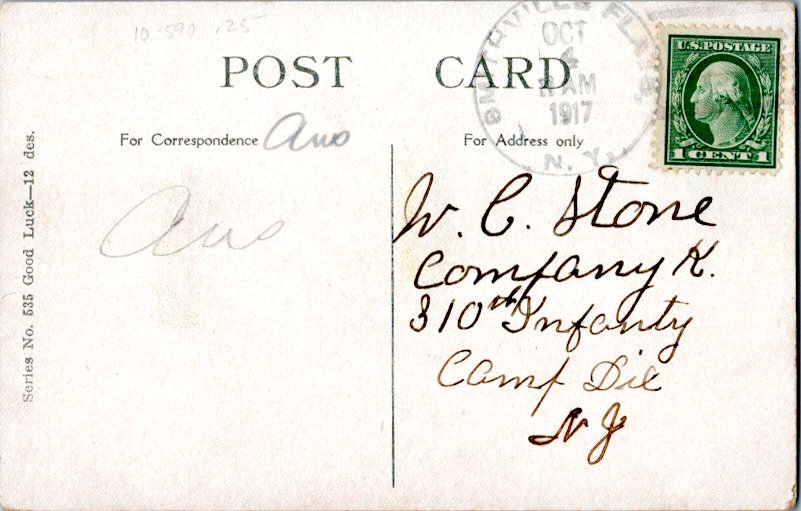 10-590 .25
POST CARD
SMITHVILLE FLATS
OCT
4
11 AM
1917
N. Y.
U.S. POSTAGE
1 CENT 1
For Correspondence Ans
For Address only
Ans
W. C. Stone
Company K.
310th Infanty
Camp Dix
N J
Series No. 535 Good Luck—12 des.